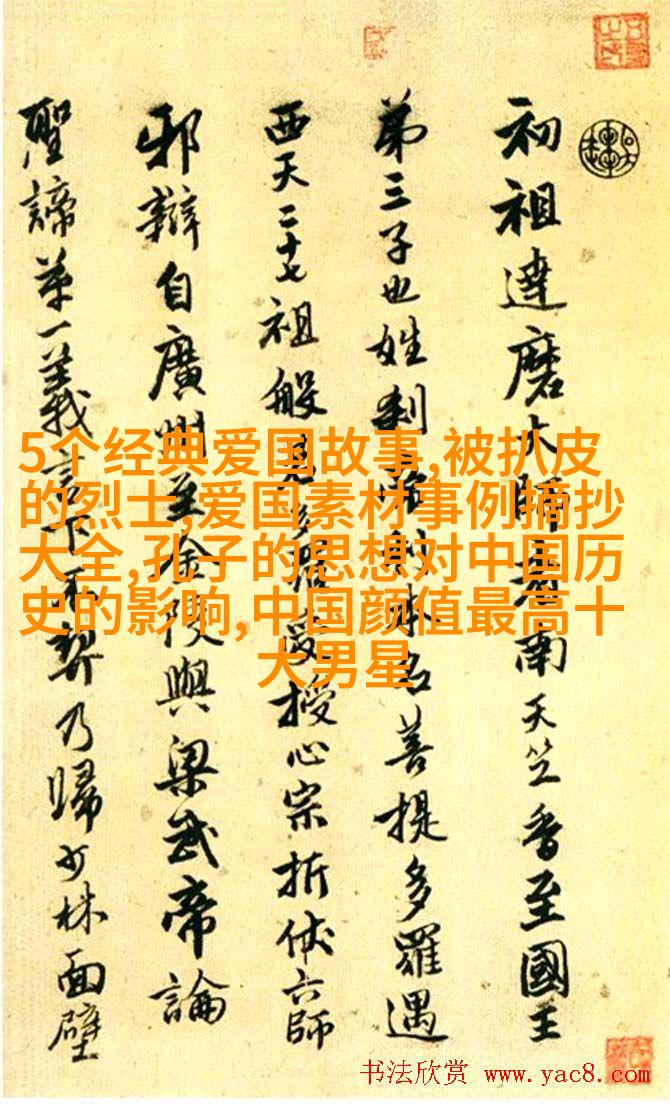 初祖達磨大師者南天竺香至國王
第三子也姓刹帝利本名菩提多羅遇
西天二十七祖般若多羅受授心宗折伏六師
邪辯自廣州至金陵與梁武帝論
聖諦第一義言下不契乃歸少林面壁
5个经典爱国故事,被扒皮
的烈士,爱国素材事例摘抄
大全,孔子的思想对中国历
史的影响,中国颜值最高十
大男星
书法欣赏 www.yac8.com